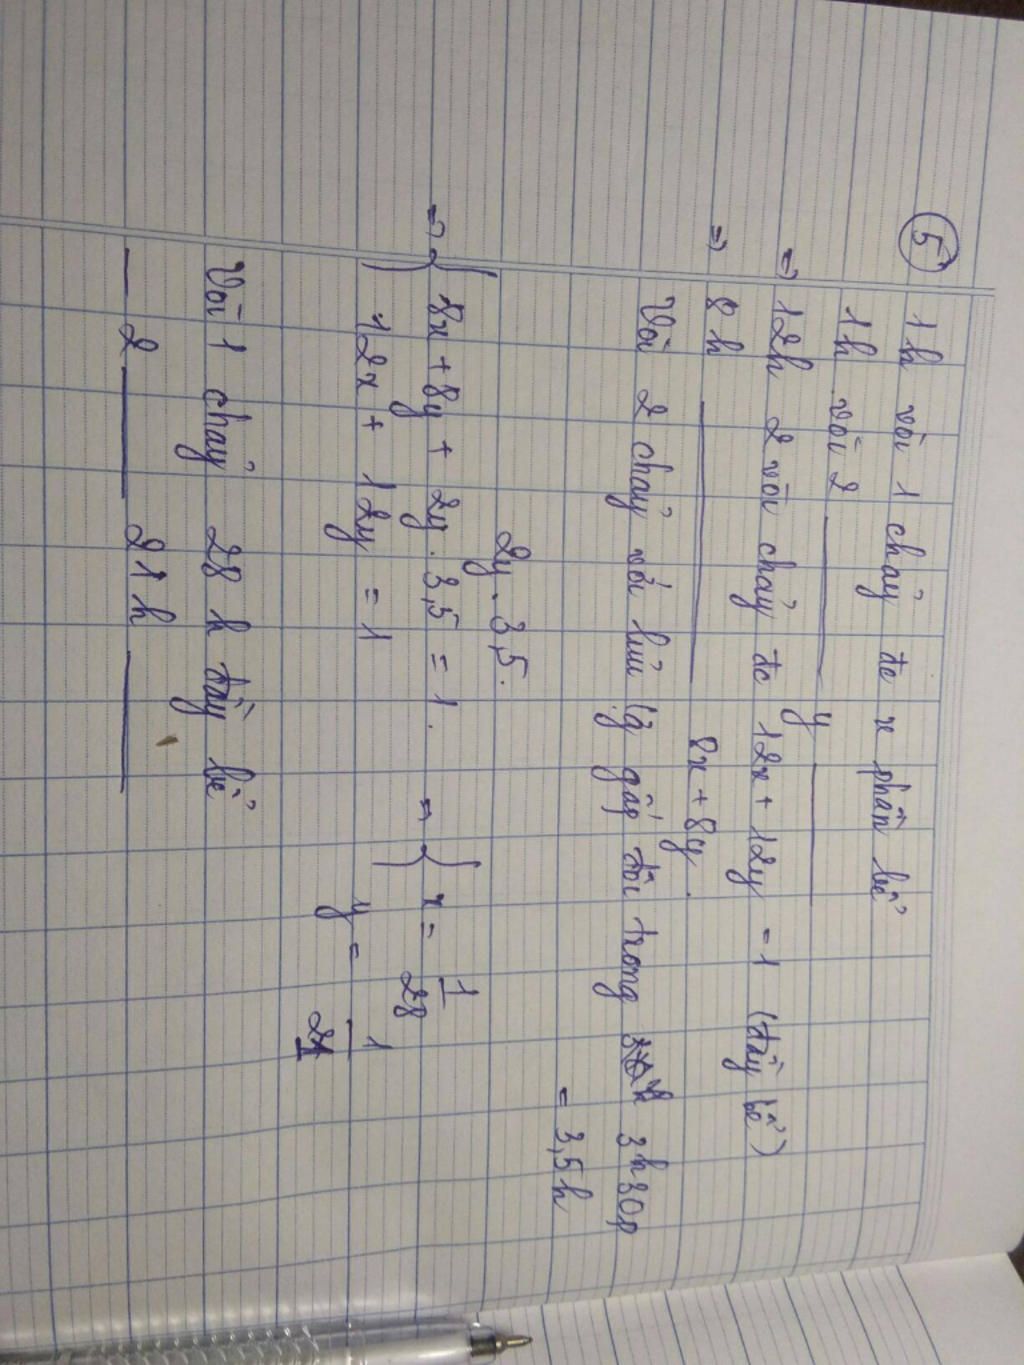 5
1h vòi 1 chảy đc x phần bể
1h vòi 2 y
=> 12h 2 vòi chảy đc 12x + 12y = 1 (đầy bể)
=> 8h 8x + 8y.
Vòi 2 chảy với lưu lg gấp đôi trong 3h30p
= 3,5h
2y . 3,5.
=> { 8x + 8y + 2y . 3,5 = 1. => { x = 1/28
12x + 12y = 1 y = 1/21
Vòi 1 chảy 28 h đầy bể
— 2 — 21h —